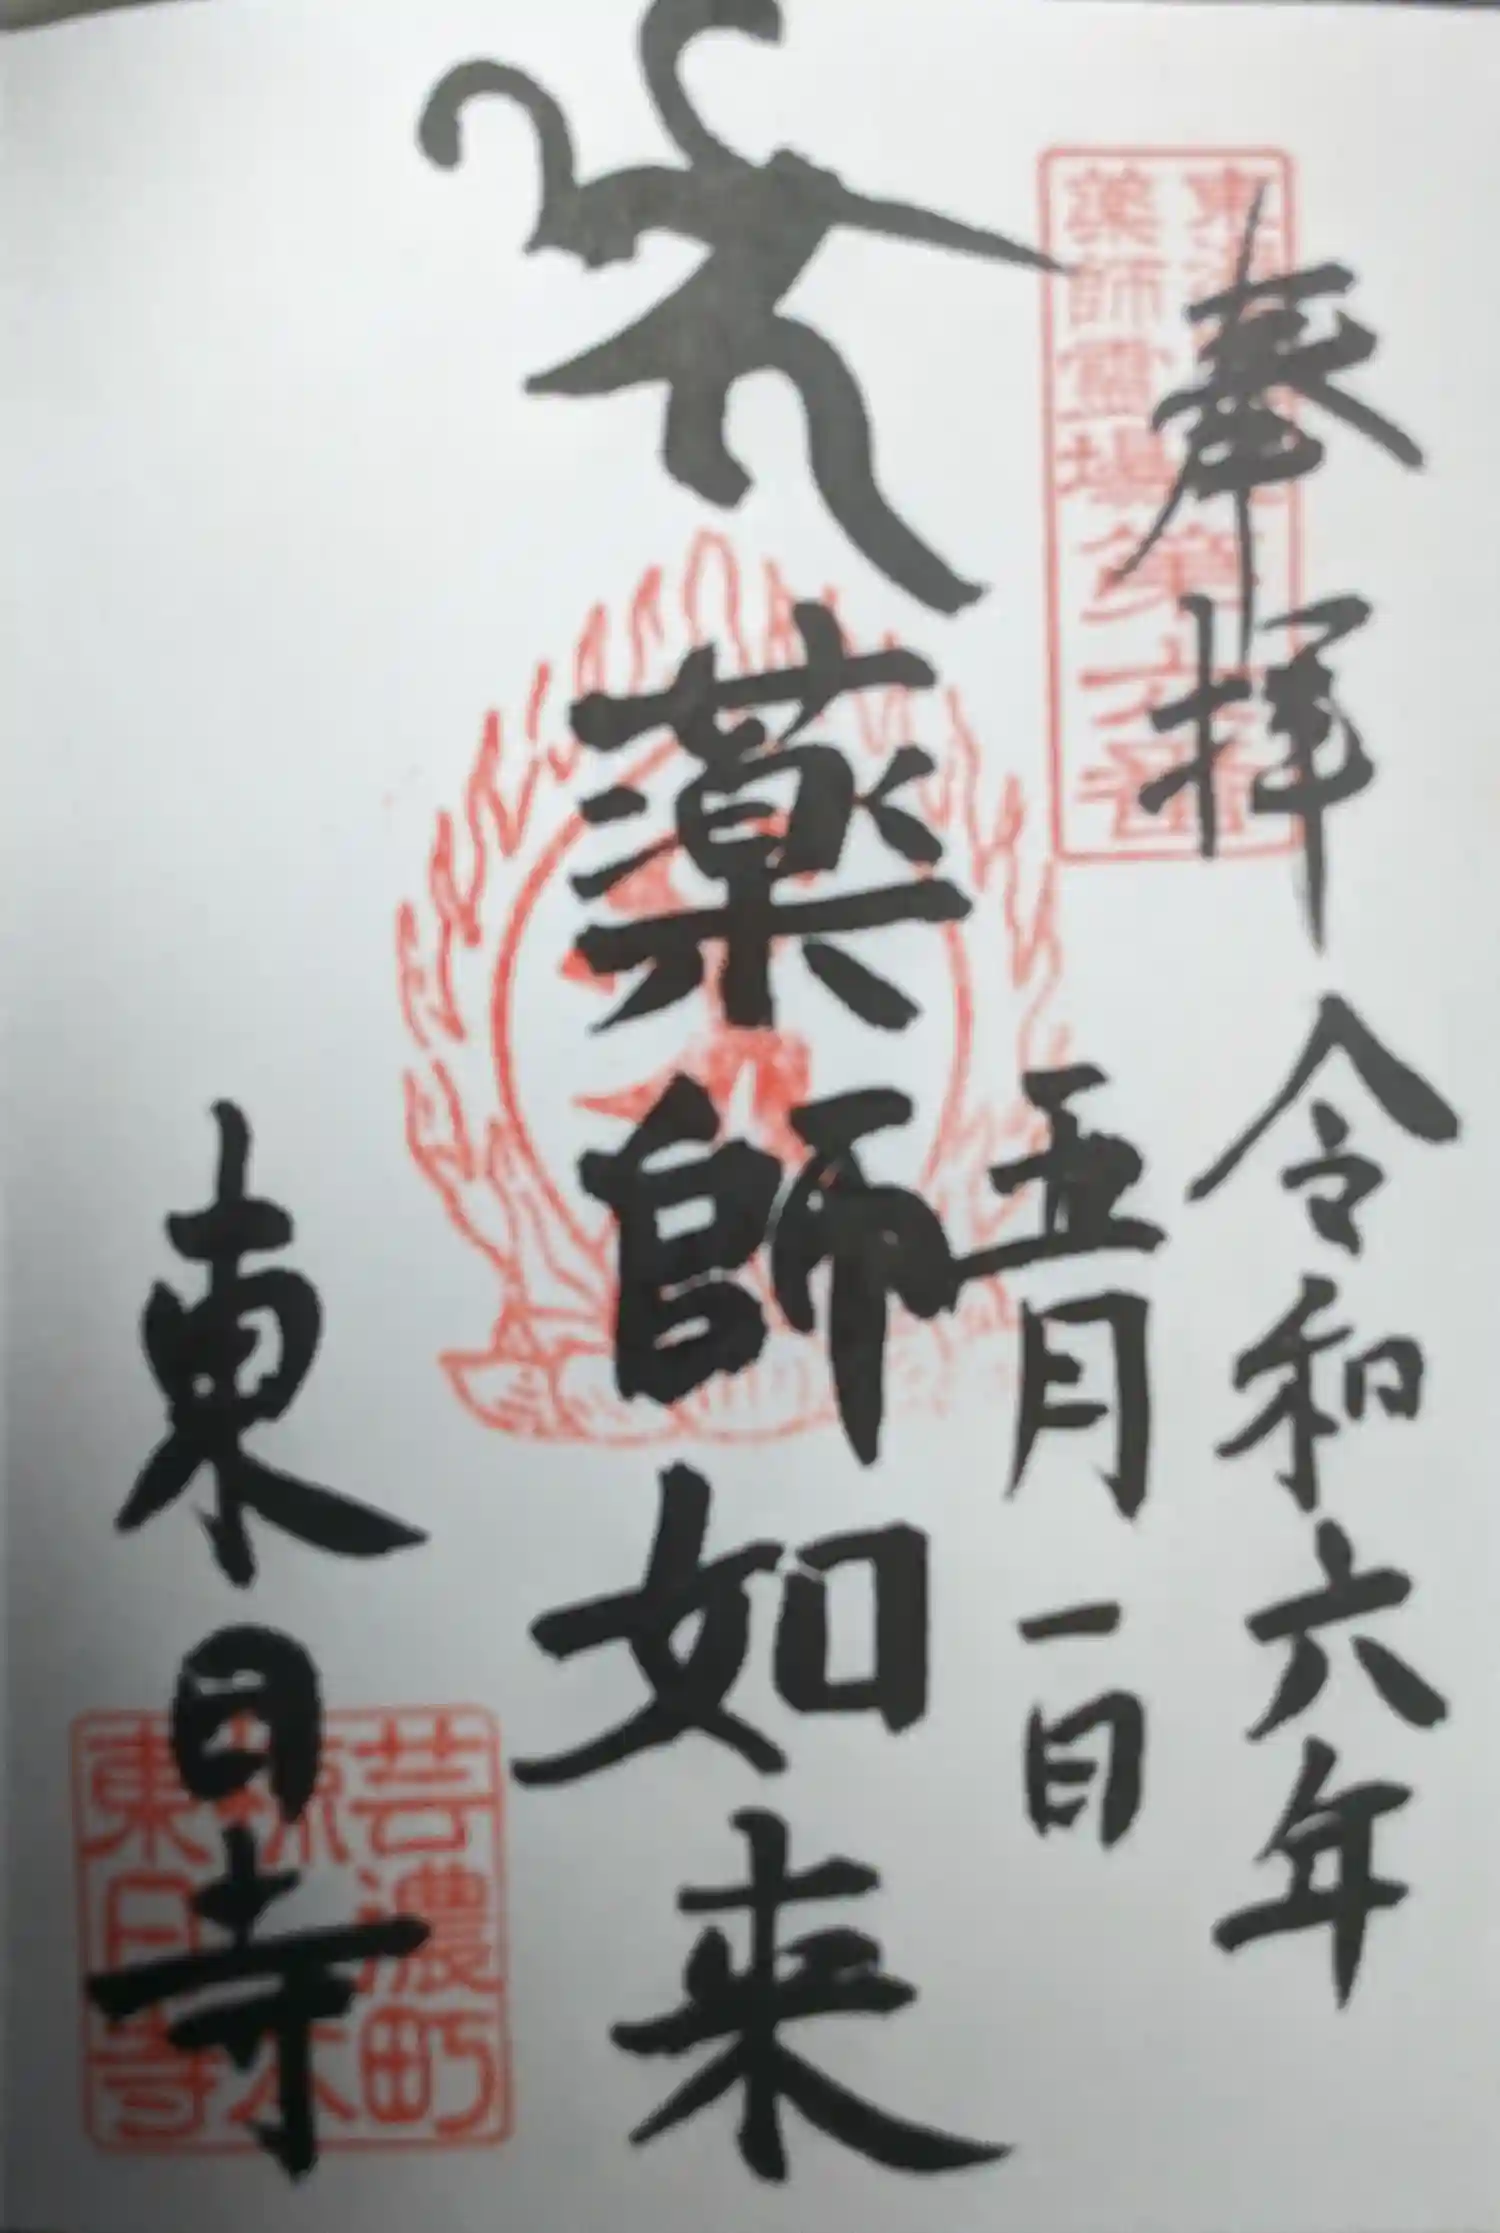 奉拝
令和六年
五月一日
薬師如来
東日寺
薬師霊場第六番
芸濃町
東日寺